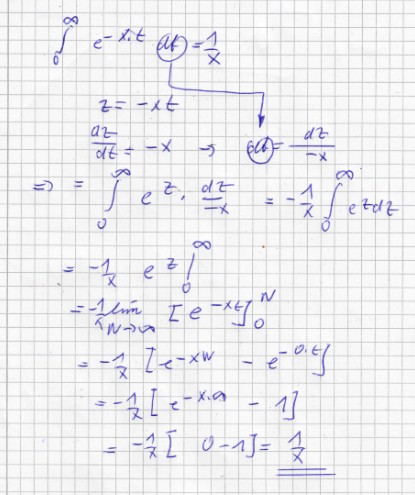 ∫₀^∞ e^{-x·t} dt = 1/x
z = -xt
dz/dt = -x → dt = dz/-x
=> = ∫₀^∞ e^z · dz/-x = -1/x ∫₀^∞ e^z dz
= -1/x e^z |₀^∞
= -1/x lim_{N→∞} [e^{-xt}]₀^N
= -1/x [e^{-xN} - e^{-0·t}]
= -1/x [e^{-x·∞} - 1]
= -1/x [0-1] = 1/x